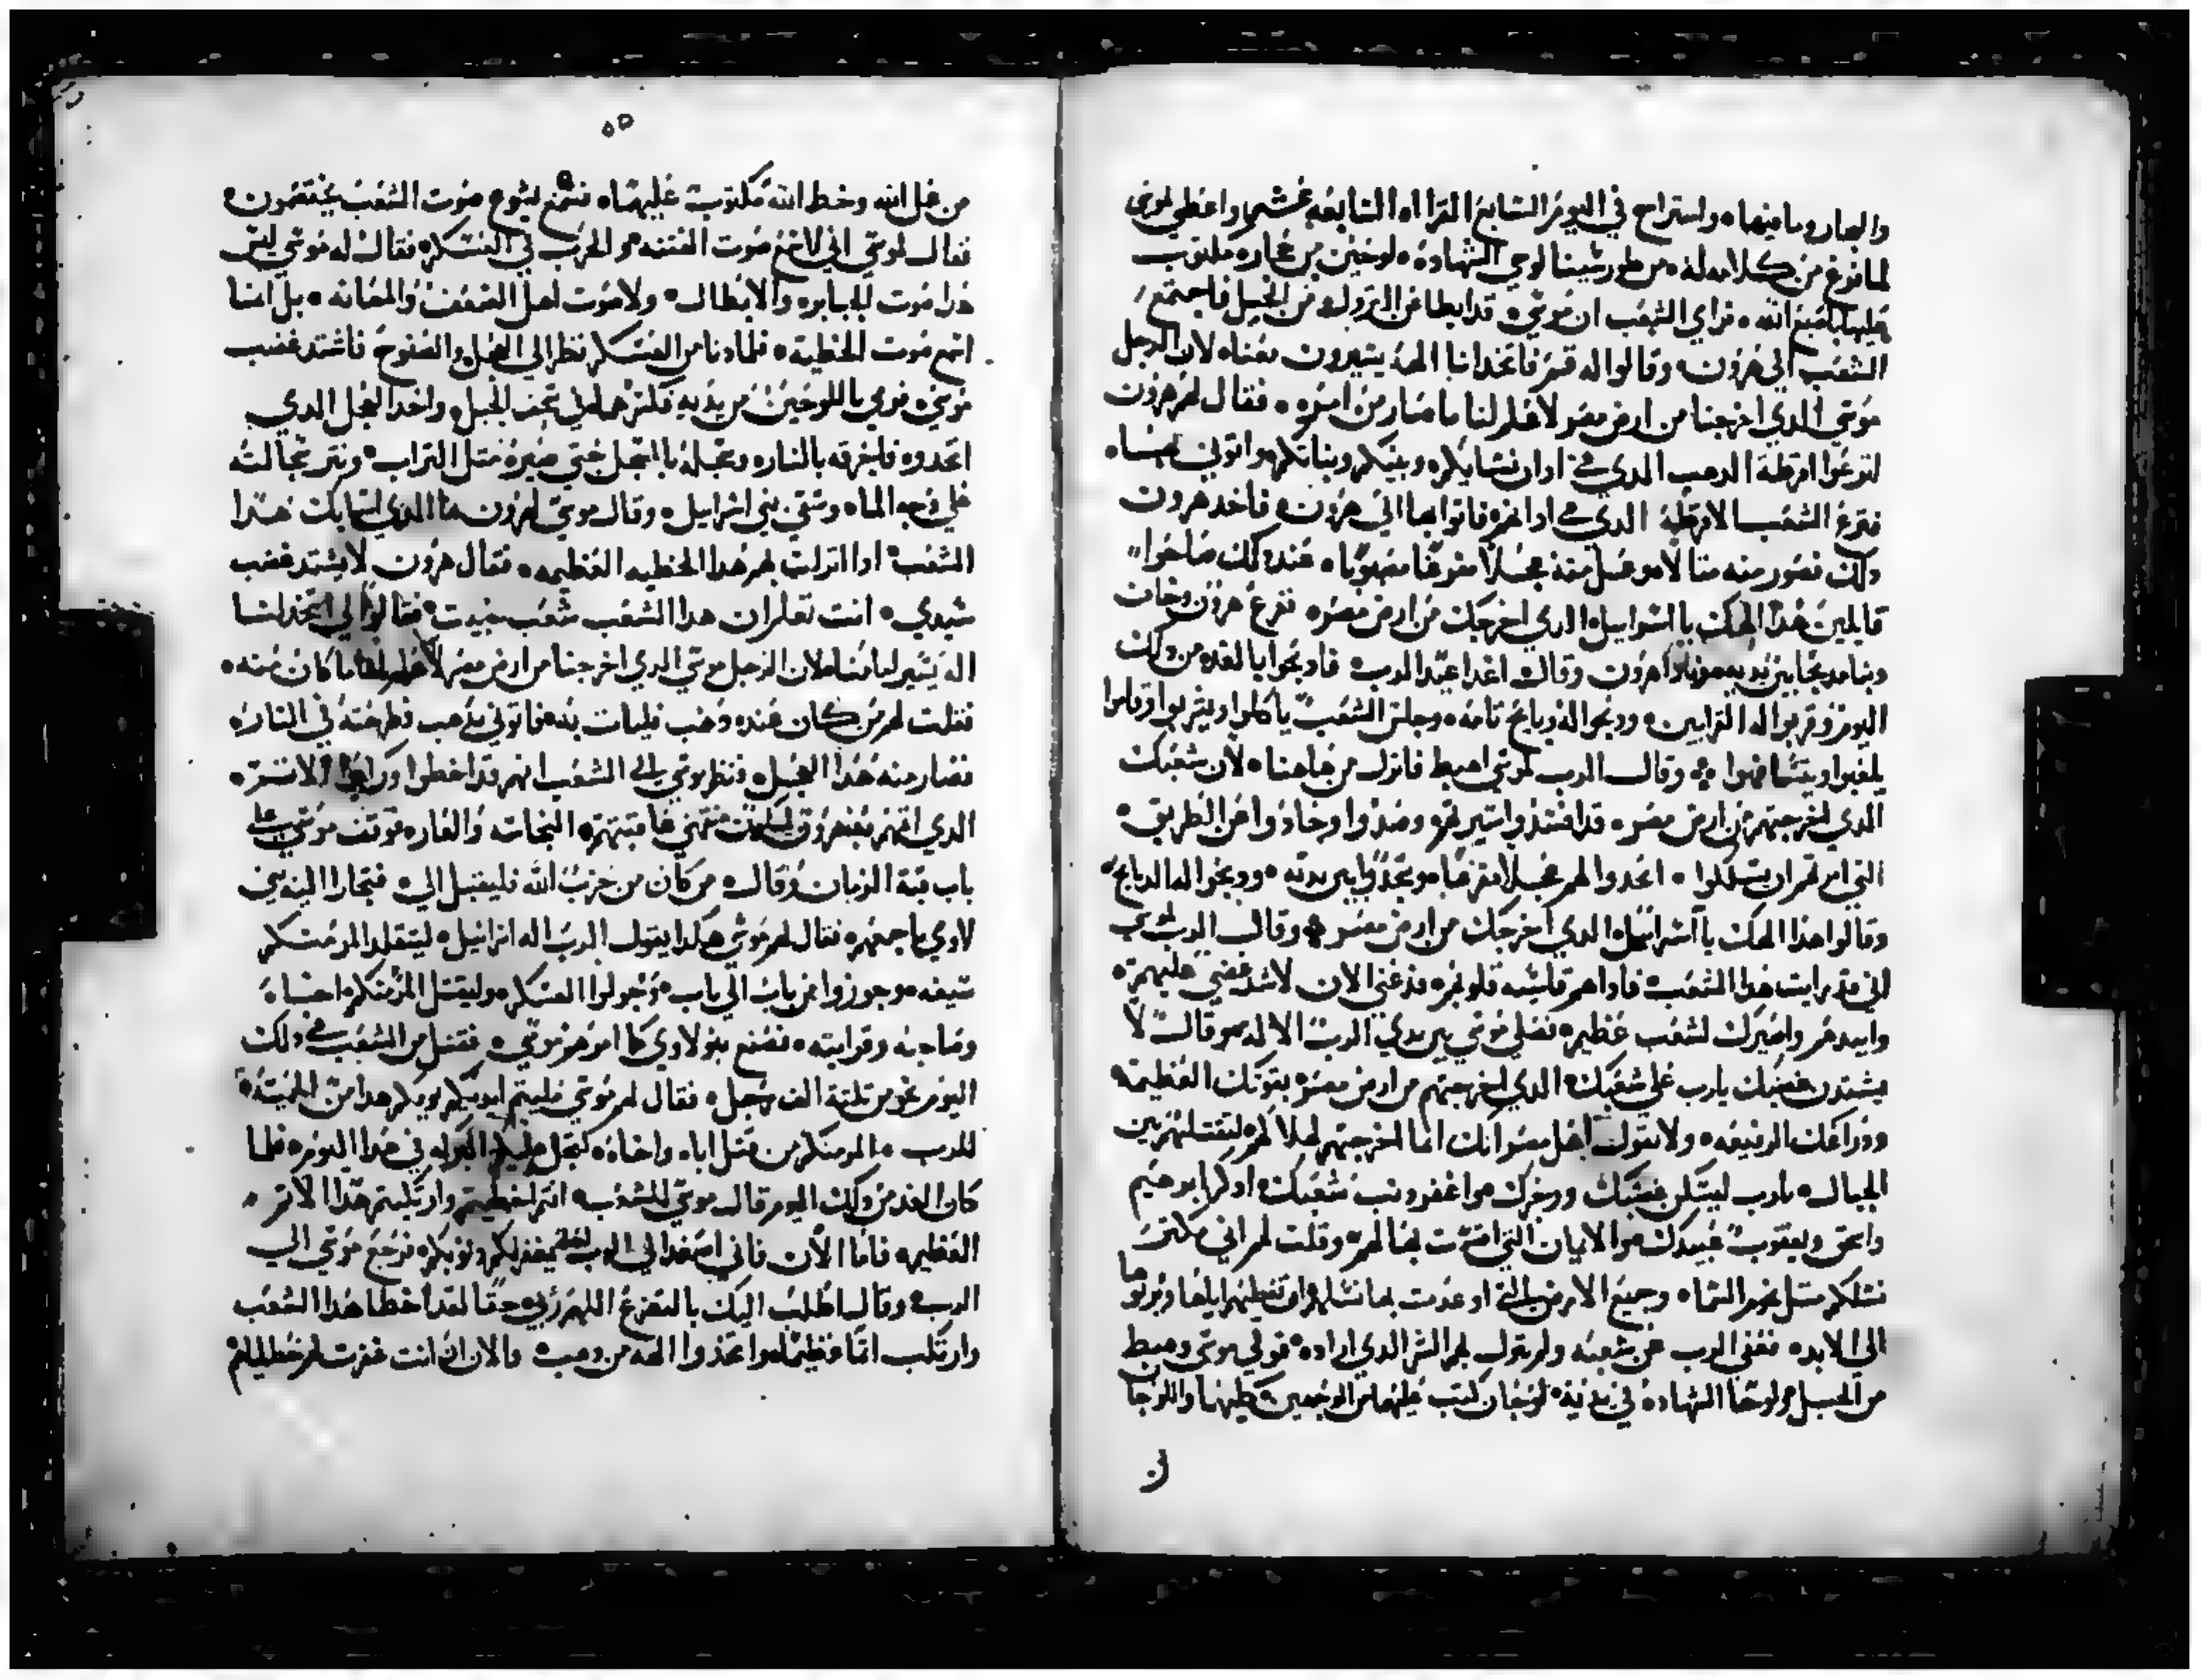 والبحار وما فيهما ه واستراح في اليوم السابع القراه السابعه عشر واعطي لموسي
لما فرغ من كلامه له ه من طور سينا لوحي الشهاده ه لوحين من حجاره مكتوب
عليها باصبع الله ه فراي الشعب ان موسي ه قد ابطا عن النزول من الجبل فاجتمع
الشعب الي هرون ه وقالوا له قم فاتخد لنا الهه يسيرون معنا ه لان الرجل
موسي الدي اخرجنا من ارض مصر لا علم لنا ما صار من امره ه فقال لهم هرون
انزعوا اقرطة الدهب الدي في ادان نسايكم ه وبنيكم وبناتكم واتوني بها ه
فنزع الشعب الاقرطه الدي في ادانهم ه فاتوا بها الي هرون ه فاخد هرون
دلك فصور منه مثالا ه وعمل منه عجلا مفرغا ه عند دلك صاحوا
قايلين هدا الهك يا اسراييل ه الدي اخرجك من ارض مصر ه ففزع هرون وخاف
وبنا مدبحا بين يديه ه ونادا هرون وقال ه اغدا عيد الرب ه فادبحوا بالغد ه من دلك
اليوم وقربوا له القرابين ه ودبحوا له دبايح تامه ه وجلس الشعب ياكلوا ويشربوا وقاموا
يلعبوا ه وقال الرب لموسي اهبط فانزل من هاهنا ه لان شعبك
الدي اخرجتهم من ارض مصر ه قد افسدوا سيرتهم ه وصدوا وحادوا عن الطريق ه
التي امرتهم ان يسلكوا ه اتخدوا لهم عجلا مفرغا ه وسجدوا بين يديه ه ودبحوا له الدبايح ه
وقالوا هدا الهك يا اسراييل ه الدي اخرجك من ارض مصر ه وقال الرب لموسي
اني قد رايت هدا الشعب ه فادا هم قاسيه قلوبهم ه فدعني الان لاشد غضبي عليهم ه
وابيدهم واصيرك لشعب عظيم ه فصلي موسي بين يدي الرب الاله ه وقال لا
يشتدن غضبك يارب علي شعبك ه الدي اخرجتهم من ارض مصر ه بقوتك العظيمه ه
ودراعك الرفيعه ه ولا يقول اهل مصر انك انما اخرجتهم لهلاكهم ه لتقتلهم بين
الجبال ه يارب ليسكن غضبك ورجزك ه واغفر دنب شعبك ه ادكر ابرهيم
واسحق ويعقوب عبيدك ه والايمان التي اقسمت بها لهم ه وقلت لهم اني مكثر
نسلكم مثل نجوم السما ه وجميع الارض التي اوعدت بها نسلهم ان تعطيهم اياها ويرثوها
الي الابد ه فعفي الرب عن شعبه ولم ينزل بهم الشر الدي اراده ه فولي موسي وهبط
من الجبل ه ولوحا الشهاده في يديه ه لوحان كتب عليهما من الوجهين كليهما واللوحان
ن
٥٥
من عمل الله وخط الله مكتوبة عليهما ه فسمع يشوع صوت الشعب يختصمون ه
فقال لموسي اني لاسمع صوت الفتنه والحرب في العسكر ه فقال له موسي ليس
هدا صوت الجبابره والابطال ه ولا صوت اهل الضعف والمهانه ه بل انما
اسمع صوت الخطيه ه فلما دنا من العسكر نظر الي العجل والصفوح فاشتد غضب
موسي ه فرمي باللوحين من يديه فكسرهما في سجف الجبل ه واخد العجل الدي
اتخدوه فاحرقه بالنار ه وسحله بالسحل حتي صيره مثل التراب ه ونثر سحالته
علي وجه الما ه وسقي بني اسراييل ه وقال موسي لهرون ما الدي اسا بك هدا
الشعب ه ادا انزلت بهم هدا الخطيه العظيمه ه فقال هرون لا يشتد غضب
سيدي ه انت تعلم ان هدا الشعب شعب خبيث ه فقالوا لي اتخد لنا
اله يسير امامنا ه لان الرجل موسي الدي اخرجنا من ارض مصر لا علم لنا ما كان منه ه
فقلت لهم من كان عنده دهب فليات به ه فاتوني بدهب فطرحته في النار ه
فصار منه هدا العجل ه فنظر موسي الي الشعب انهم قد اخطوا
باب قبة الزمان وقال ه من كان من حزب الله فليقبل الي ه فتجازا اليه بني
لاوي باجمعهم ه فقال لهم موسي هكدا يقول الرب اله اسراييل ه ليتقلد المر منكم
سيفه ه وجوزوا من باب الي باب ه وجولوا العسكر ه وليقتل المر منكم اخاه
وصاحبه وقرابته ه فصنع بنو لاوي كما امرهم موسي ه فقتل من الشعب في دلك
اليوم نحو من تلتة الف رجل ه فقال لهم موسي
للرب ه المر منكم من قتل اباه واخاه ه لتحل عليكم البركه في هدا اليوم ه فلما
كان الغد من دلك اليوم قال موسي للشعب ه انتم اخطيتم وارتكبتم هدا الاثم ه
العظيم ه فاما الان فاني اصعد الي الرب لعله يغفر لكم دنوبكم ه فرجع موسي الي
الرب ه وقال اطلب اليك بالتضرع اللهم ربي ه حقا لقد اخطا هدا الشعب
وارتكب اثما عظيما ه واتخدوا الهه من دهب ه والان ان انت غفرت لهم خطاياهم